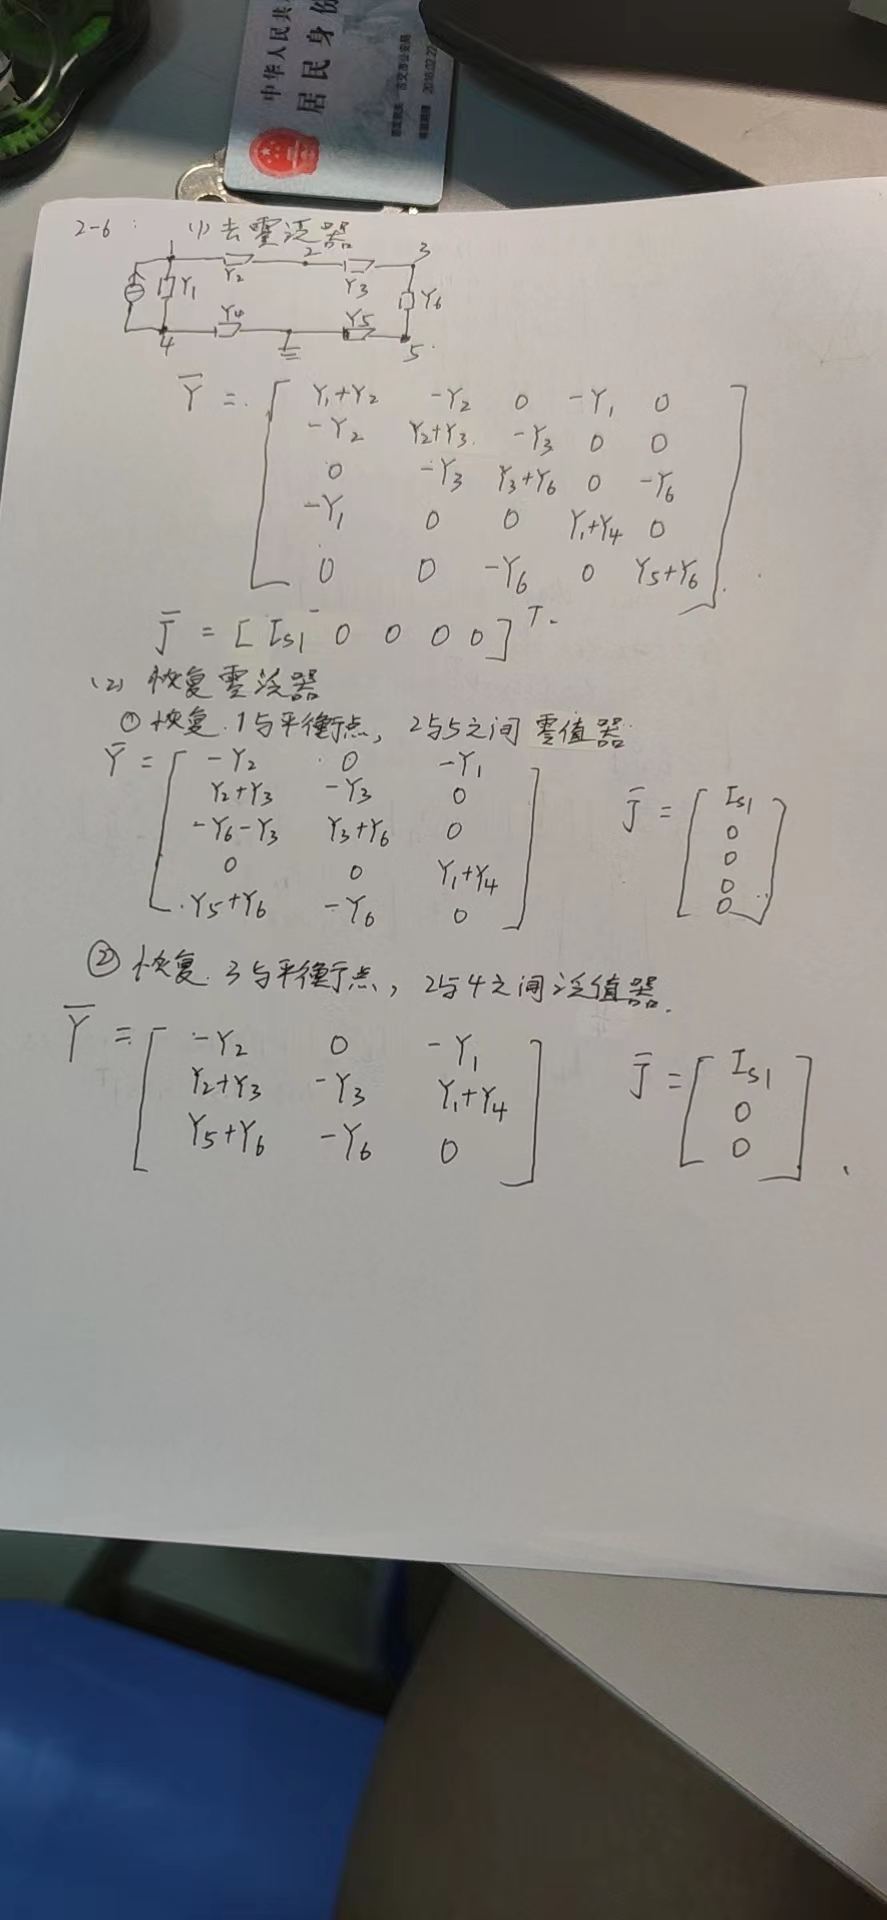 中华人民共
居民身份
2016.02.22
2-6: (1) 去零泛器
1 Y2 2 Y3 3
Y1 Y6
4 Y4 Y5 5
Ȳ = [ Y1+Y2 -Y2 0 -Y1 0
-Y2 Y2+Y3 -Y3 0 0
0 -Y3 Y3+Y6 0 -Y6
-Y1 0 0 Y1+Y4 0
0 0 -Y6 0 Y5+Y6 ]
J̄ = [ Is1 0 0 0 0 ]T.
(2) 恢复零泛器
① 恢复 1与平衡点, 2与5之间零值器
Ȳ = [ -Y2 0 -Y1
Y2+Y3 -Y3 0
-Y6-Y3 Y3+Y6 0
0 0 Y1+Y4
Y5+Y6 -Y6 0 ]
J̄ = [ Is1
0
0
0
0 ]
② 恢复 3与平衡点, 2与4之间泛值器.
Ȳ = [ -Y2 0 -Y1
Y2+Y3 -Y3 Y1+Y4
Y5+Y6 -Y6 0 ]
J̄ = [ Is1
0
0 ]